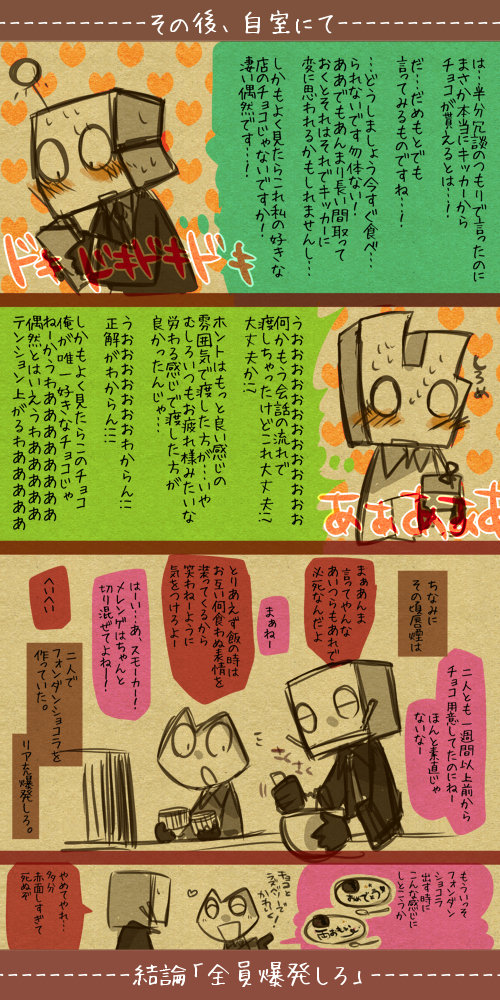 その後、自室にて
は…半分冗談のつもりで言ったのに
まさか本当にキッカーから
チョコが貰えるとは…!
だ…だめもとでも
言ってみるものですね…!
…どうしましょう今すぐ食べ…
られないです勿体ない!
ああでもあんまり長い間取って
おくとそれはそれでキッカーに
変に思われるかもしれませんし…
しかもよく見たらこれ私の好きな
店のチョコじゃないですか!
凄い偶然です…!
ドキドキドキドキ
しろめ
うおおおおおおおおおおおお
何かもう会話の流れで
渡しちゃったけどこれ大丈夫!?
大丈夫か!?
ホントはもっと良い感じの
雰囲気で渡した方が…いや
むしろいつもお疲れ様みたいな
労わる感じで渡した方が
良かったんじゃ…
うおおおおおおおわからん!!
正解がわからん!!
しかもよく見たらこのチョコ
俺が唯一好きなチョコじゃ
ねーか、うわあああああああ
偶然とはいえうわああああああ
テンション上がるわああああああ
あぁあぁぁあ
ちなみに
その頃厨煙は
二人とも一週間以上前から
チョコ用意してたのにねー
ほんと素直じゃ
ないなー
まぁあんま
言ってやんな
あいつらもあれで
必死なんだよ
まぁねー
とりあえず飯の時は
お互い何食わぬ表情を
装ってくるから
笑わねーように
気をつけろよー
はーい…あ、スモーカー!
メレンゲはちゃんと
切り混ぜてよねー!
へいへい
二人で
フォンダンショコラを
作っていた。
リア充爆発しろ。
もういっそ
フォンダン
ショコラ
出す時に
こんな感じに
しとこうか
チョコと
ラズベリーで
かいた!
やめてやれ…
多分
赤面しすぎて
死ぬぞ
結論「全員爆発しろ」